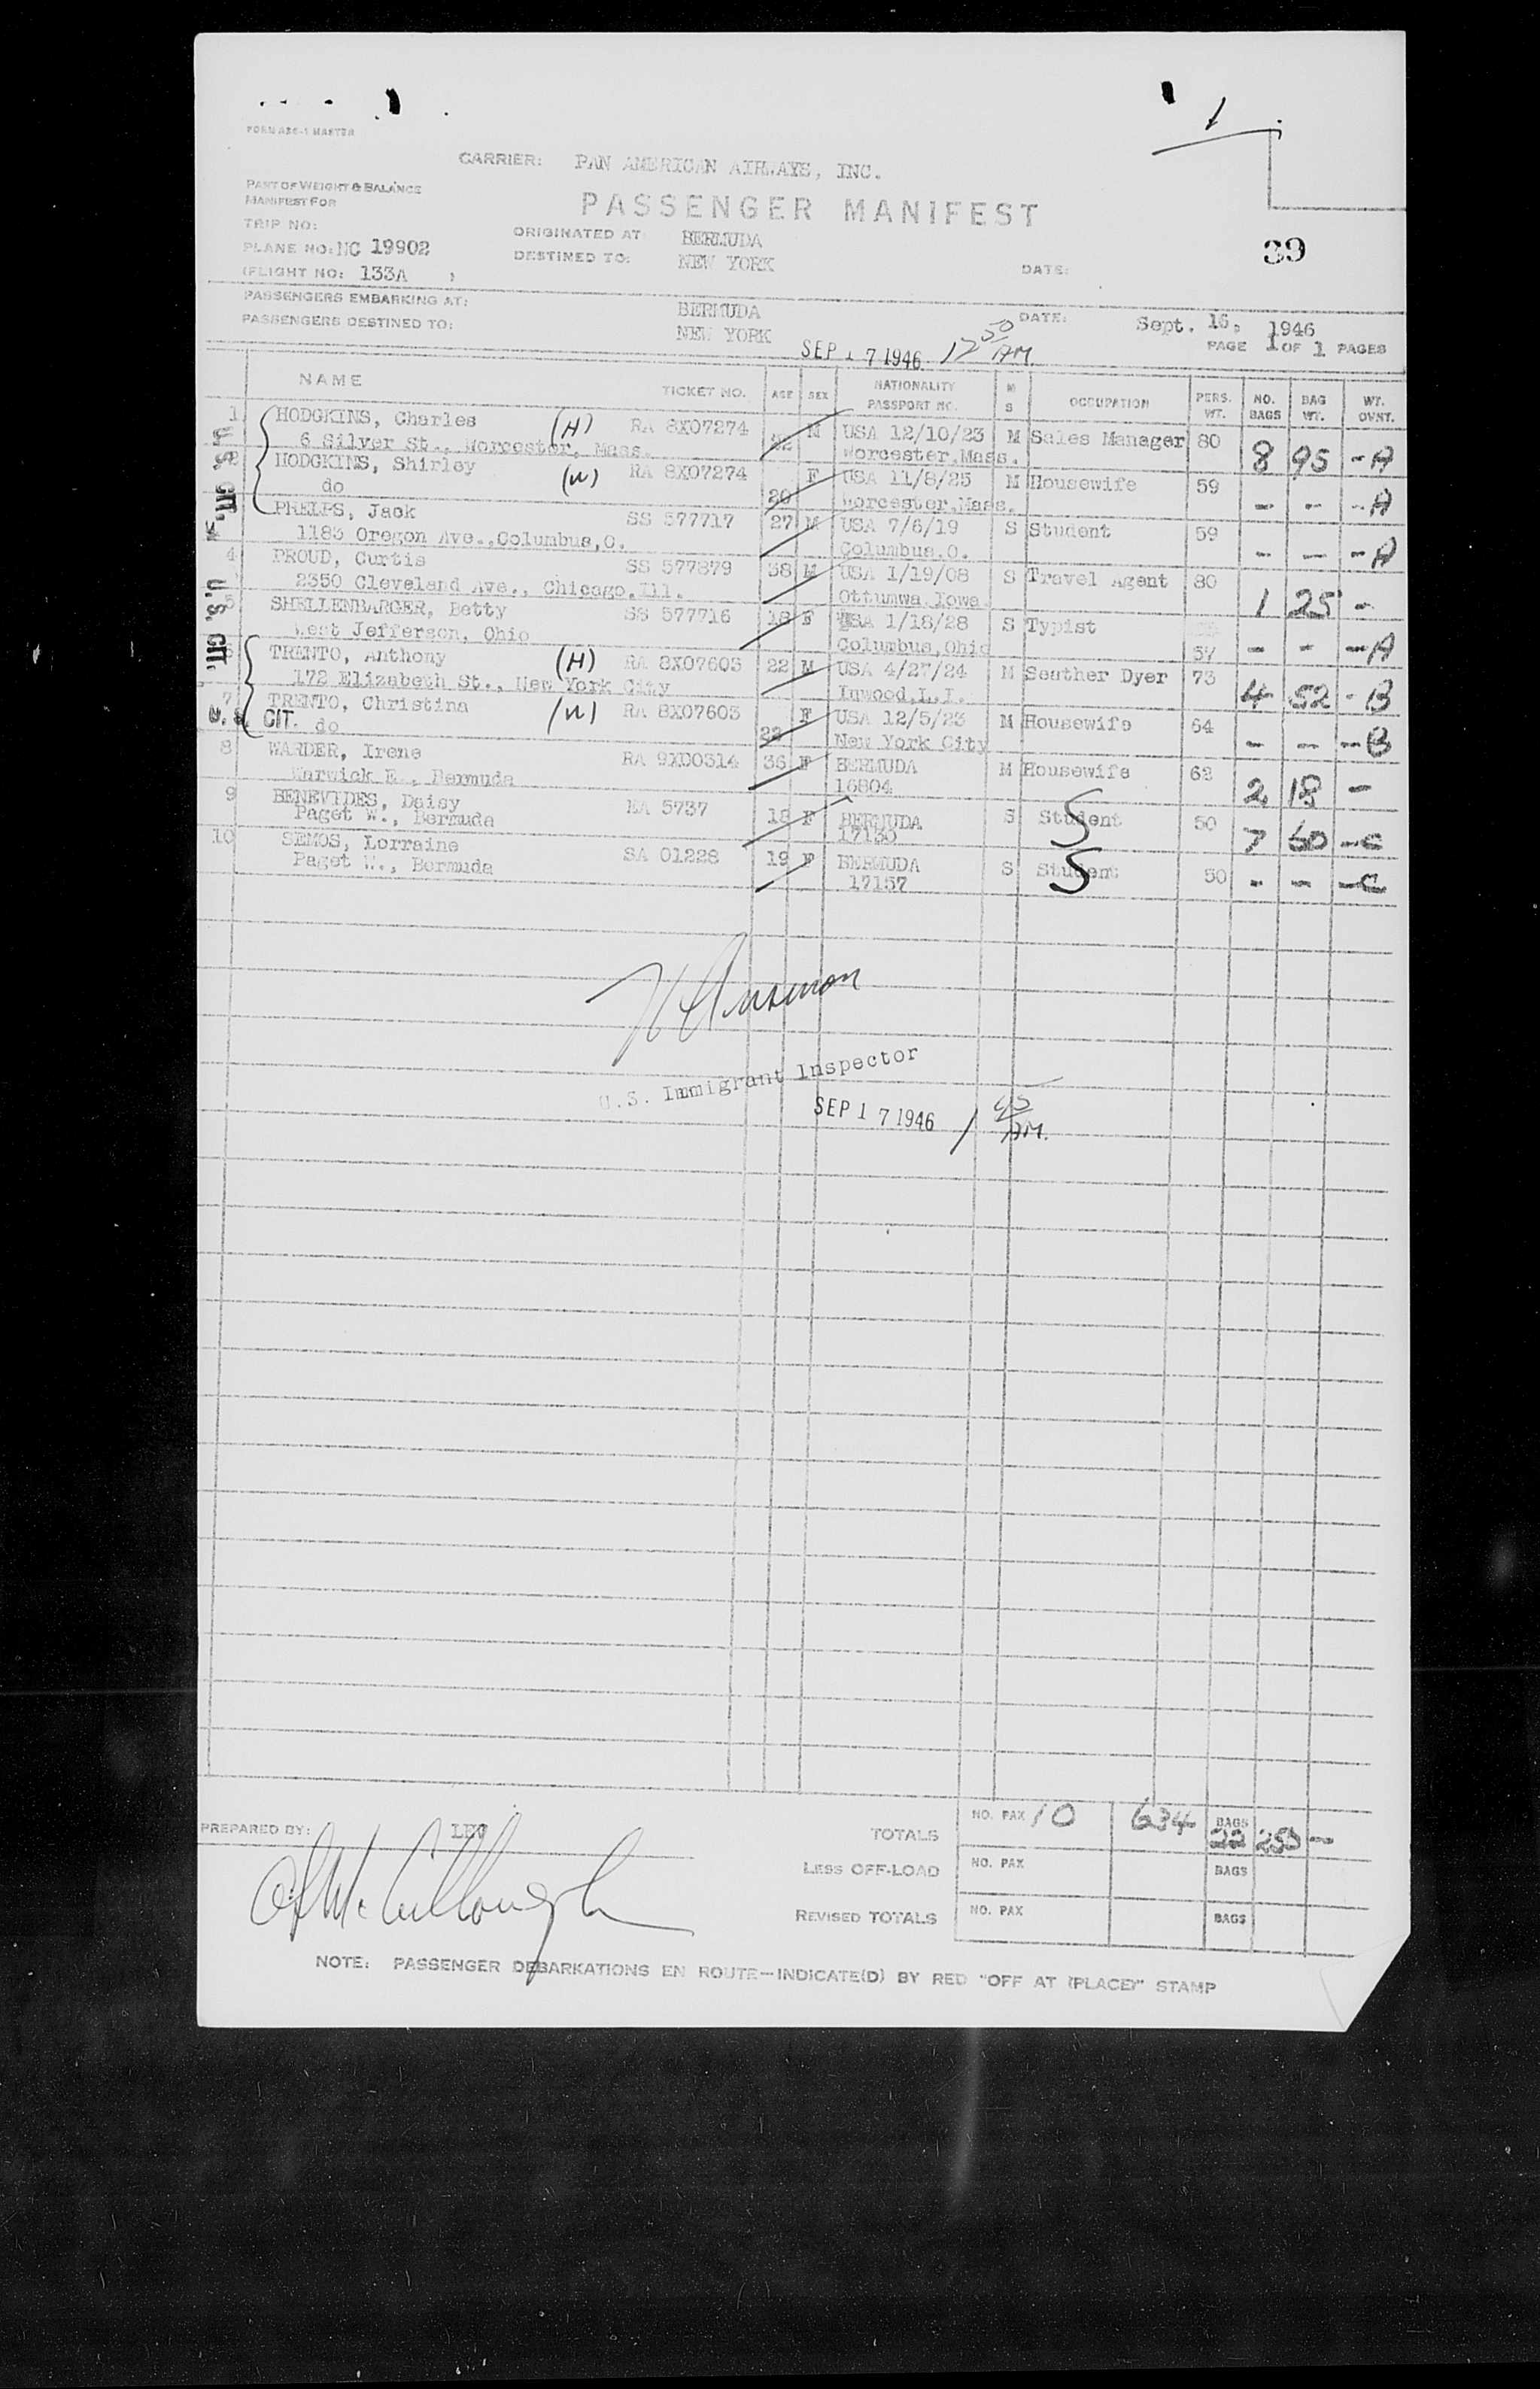 FORM ABC-1 MASTER
CARRIER: PAN AMERICAN AIRWAYS, INC.
PART OF WEIGHT & BALANCE
MANIFEST FOR
PASSENGER MANIFEST
TRIP NO:
PLANE NO: NC 19902
(FLIGHT NO: 133A )
ORIGINATED AT: BERMUDA
DESTINED TO: NEW YORK
DATE:
39
PASSENGERS EMBARKING AT: BERMUDA
PASSENGERS DESTINED TO: NEW YORK
DATE: Sept. 16, 1946
PAGE 1 OF 1 PAGES
SEP 17 1946 12 50 AM
NAME TICKET NO. AGE SEX NATIONALITY PASSPORT NO. M S OCCUPATION PERS. WT. NO. BAGS BAG WT. WT. OVNT.
1 HODGKINS, Charles (H) RA 8X07274 M USA 12/10/23 M Sales Manager 80 8 95 - A
6 Silver St., Worcester, Mass. Worcester, Mass.
HODGKINS, Shirley (W) RA 8X07274 20 F USA 11/8/25 M Housewife 59 - - - A
do Worcester, Mass.
PHELPS, Jack SS 577717 27 M USA 7/6/19 S Student 59 - - - A
1183 Oregon Ave., Columbus, O. Columbus, O.
4 PROUD, Curtis SS 577879 38 M USA 1/19/08 S Travel Agent 80 1 25 -
2350 Cleveland Ave., Chicago, Ill. Ottumwa, Iowa
5 SHELLENBARGER, Betty SS 577716 18 F USA 1/18/28 S Typist 57 - - - A
West Jefferson, Ohio Columbus, Ohio
6 TRENTO, Anthony (H) RA 8X07603 22 M USA 4/27/24 M Seather Dyer 73 4 52 - B
172 Elizabeth St., New York City Inwood, L.I.
7 TRENTO, Christina (W) RA 8X07603 22 F USA 12/5/23 M Housewife 64 - - - B
do New York City
8 WARDER, Irene RA 9X00314 36 F BERMUDA M Housewife 62 2 18 -
Warwick E., Bermuda 16804
9 BENEVIDES, Daisy 5737 18 F BERMUDA S Student 50 7 60 - C
Paget W., Bermuda 17130
10 SEMOS, Lorraine SA 01228 19 F BERMUDA S Student 50 - - - C
Paget W., Bermuda 17157
U.S. CIT.
U.S. CIT.
U.S. CIT.
S
S
U.S. Immigrant Inspector
SEP 17 1946 1 45 AM.
PREPARED BY:
TOTALS NO. PAX 10 634 BAGS 22 250 -
LESS OFF-LOAD NO. PAX BAGS
REVISED TOTALS NO. PAX BAGS
NOTE: PASSENGER DEBARKATIONS EN ROUTE—INDICATE(D) BY RED "OFF AT (PLACE)" STAMP